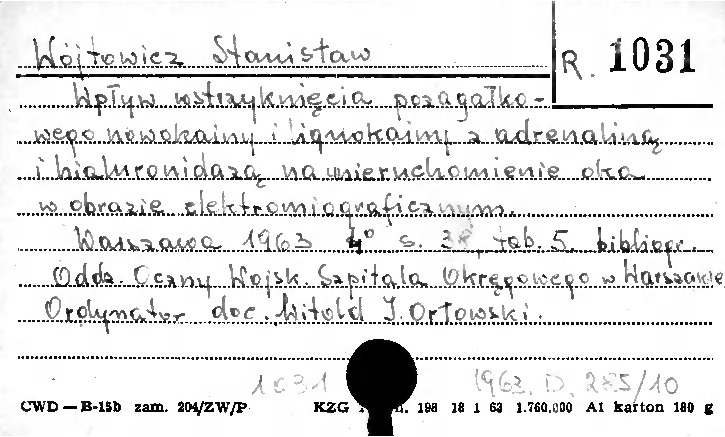 Wójtowicz Stanisław
R. 1031
Wpływ wstrzyknięcia pozagałko-
wego nowokainy i lignokainy z adrenaliną
i hialuronidazą na unieruchomienie oka
w obrazie elektromiograficznym.
Warszawa 1963 4° s. 38, tab. 5. bibliogr.
Oddz. Oczny Wojsk. Szpitala Okręgowego w Warszawie
Ordynator doc. Witold J. Orłowski.
1031 1963. D. 285/10
CWD — B-15b zam. 204/ZW/P KZG n. 198 18 1 63 1.760.000 A1 karton 180 g